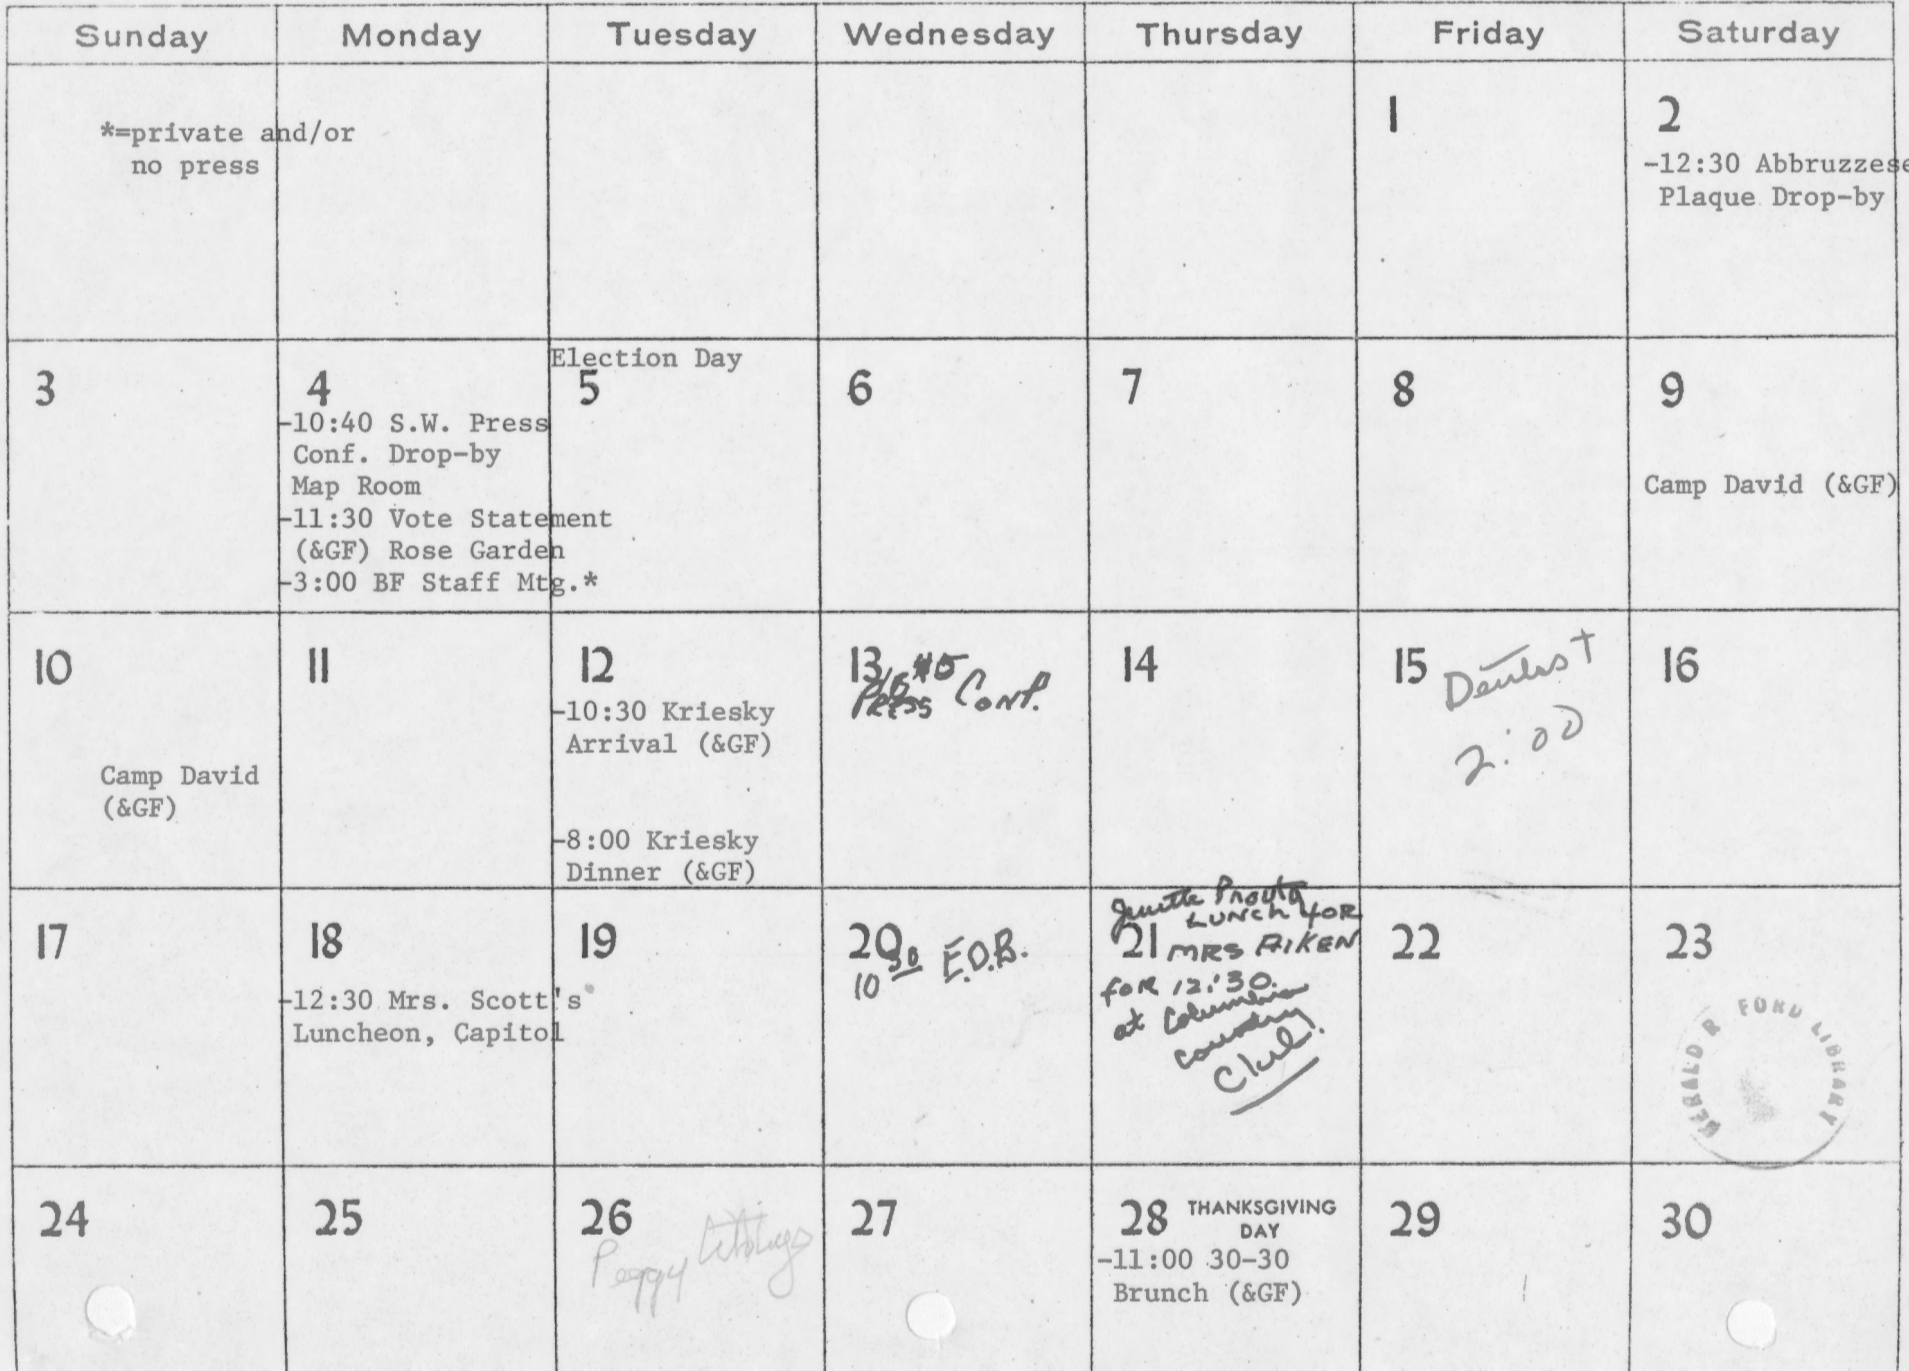 Sunday Monday Tuesday Wednesday Thursday Friday Saturday
*=private and/or
no press
1
2
-12:30 Abbruzzese
Plaque Drop-by
3
4
-10:40 S.W. Press
Conf. Drop-by
Map Room
-11:30 Vote Statement
(&GF) Rose Garden
-3:00 BF Staff Mtg.*
Election Day
5
6
7
8
9
Camp David (&GF)
10
Camp David
(&GF)
11
12
-10:30 Kriesky
Arrival (&GF)
-8:00 Kriesky
Dinner (&GF)
13
Press Conf.
14
15 Dentist
2:00
16
17
18
-12:30 Mrs. Scott's
Luncheon, Capitol
19
20
10 30 E.O.B.
LUNCH FOR
21 MRS AIKEN
FOR 12:30.
at Columbia
country
Club!
22
23
GERALD R FORD LIBRARY
24
25
26
Peggy
27
28 THANKSGIVING
DAY
-11:00 30-30
Brunch (&GF)
29
30